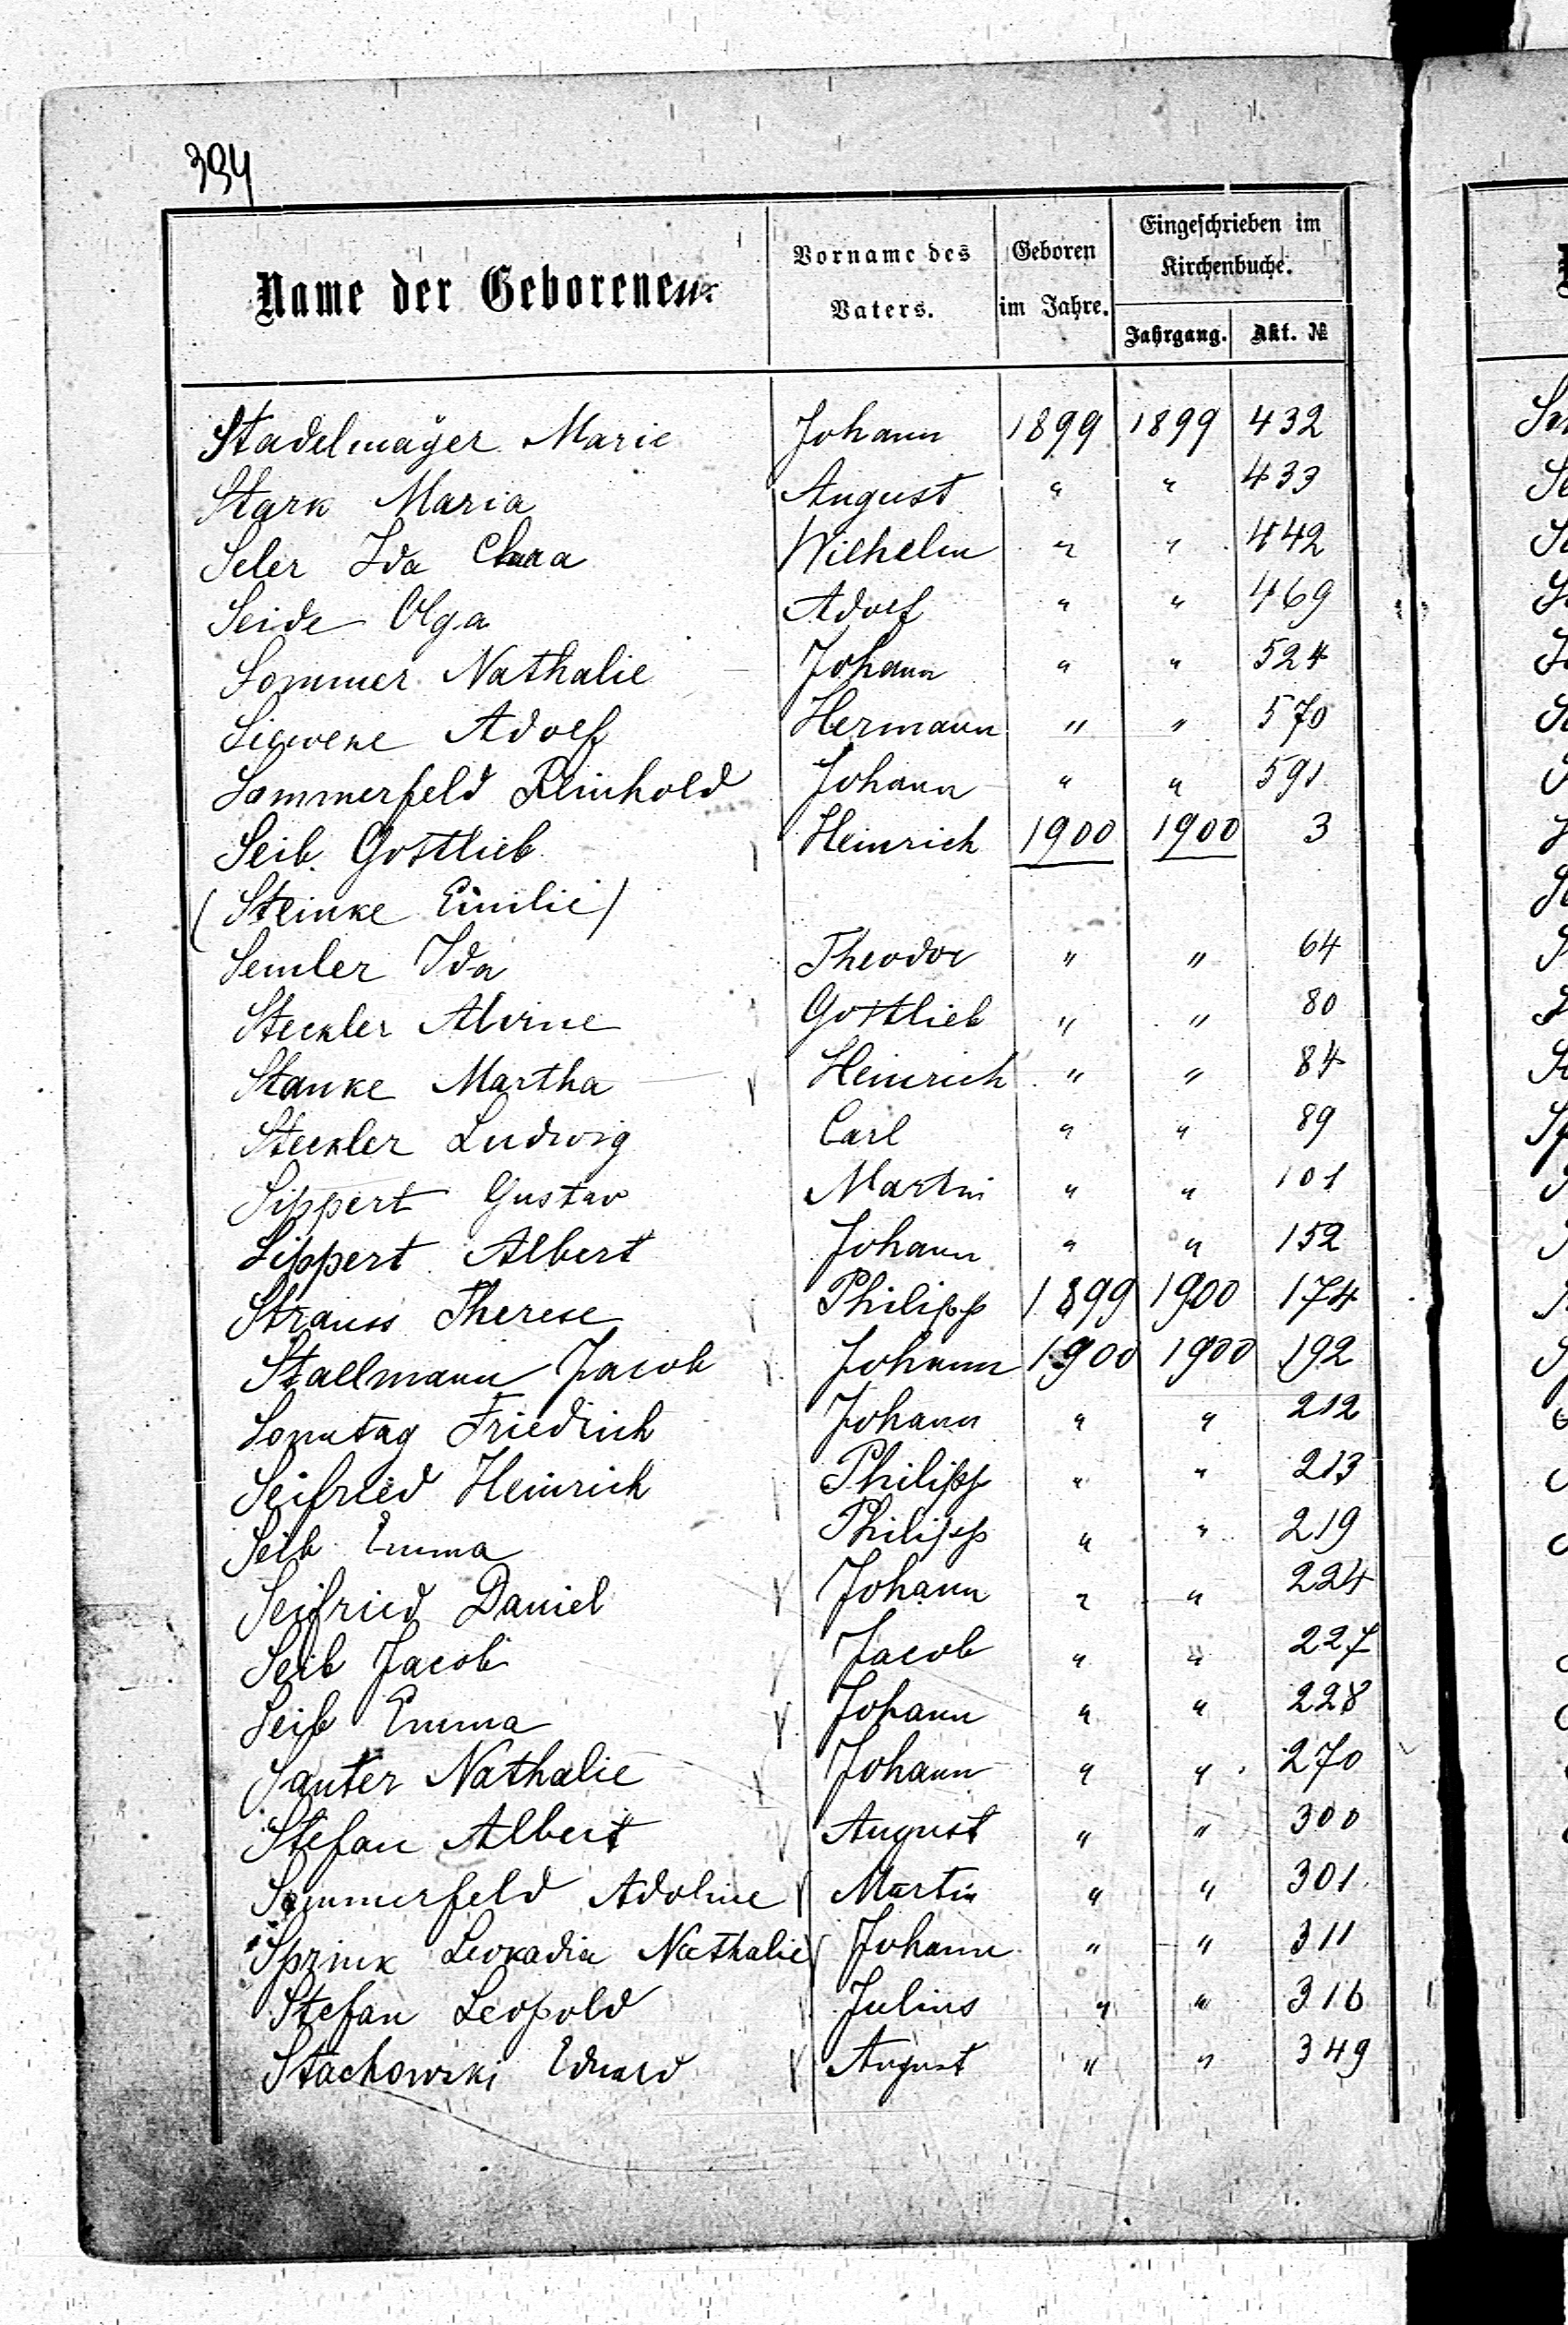 394
Name der Geborenen. Vorname des Vaters. Geboren im Jahre. Eingeschrieben im Kirchenbuche. Jahrgang. Akt. №
Stadelmayer Marie Johann 1899 1899 432
Stark Maria August " " 433
Seler Ida Clara Wilhelm " " 442
Seide Olga Adolf " " 469
Sommer Nathalie Johann " " 524
Adolf Hermann " " 570
Sommerfeld Reinhold Johann " " 591
Seib Gottlieb Heinrich 1900 1900 3
(Steinke Emilie)
Semler Ida Theodor " " 64
Steckler Alvine Gottlieb " " 80
Stanke Martha Heinrich " " 84
Steckler Ludwig Carl " " 89
Sippert Gustav Martin " " 101
Sippert Albert Johann " " 152
Strauss Therese Philipp 1899 1900 174
Stallmann Jacob Johann 1900 1900 192
Sonntag Friedrich Johann " " 212
Seifried Heinrich Philipp " " 213
Seib Emma Philipp " " 219
Seifried Daniel Johann " " 224
Seib Jacob Jacob " " 227
Seib Emma Johann " " 228
Sauter Nathalie Johann " " 270
Stefan Albert August " " 300
Sommerfeld Adoline Martin " " 301
Sprink Leokadia Nathalie Johann " " 311
Stefan Leopold Julius " " 316
Stachowski Eduard August " " 349